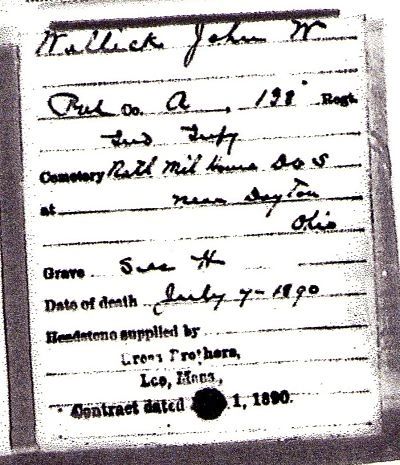 Wallick John W
Pvt Co. A, 138" Regt.
Ind Infy
Cemetery Natl Mil Home D.V.S
at near Dayton
Ohio
Grave Sec H
Date of death July 7-1890
Headstone supplied by
Gross Brothers,
Lee, Mass.,
Contract dated 1, 1890.